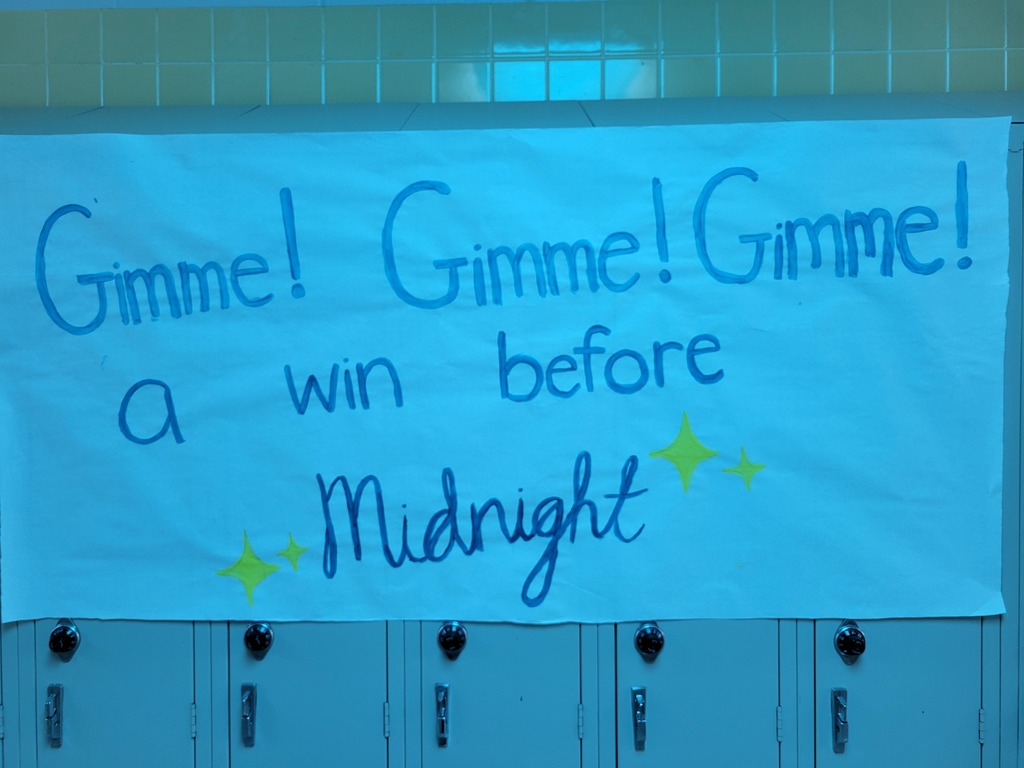 Gimme! Gimme! Gimme!
a win before
Midnight